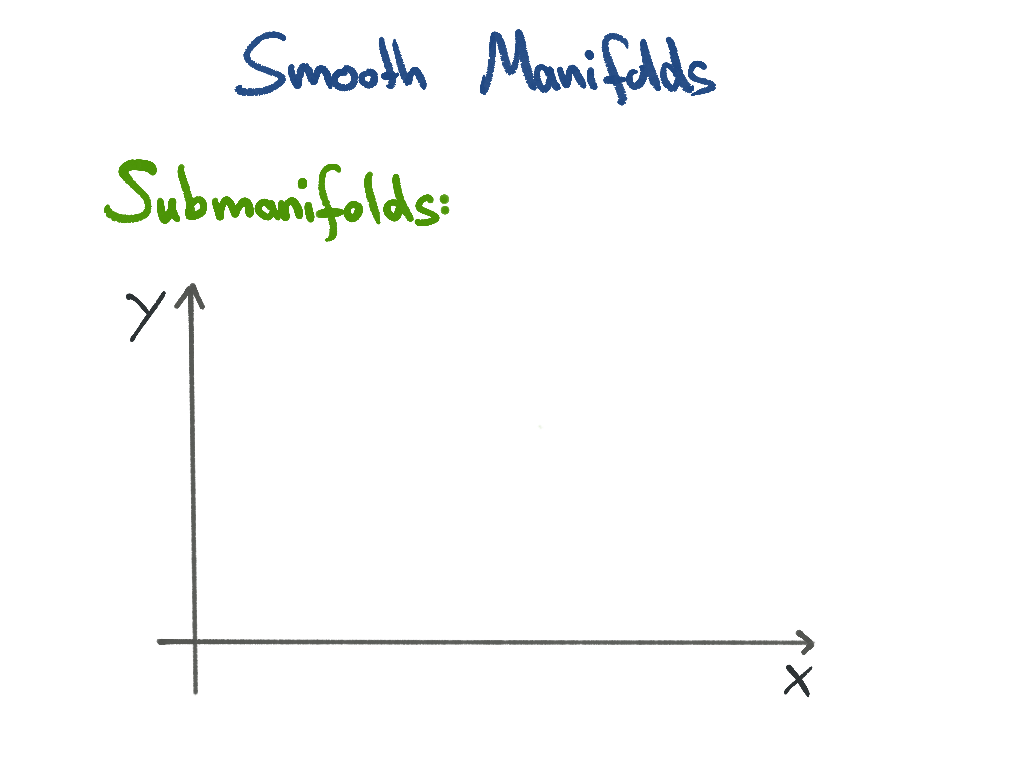 Smooth Manifolds
Submanifolds:
y
x